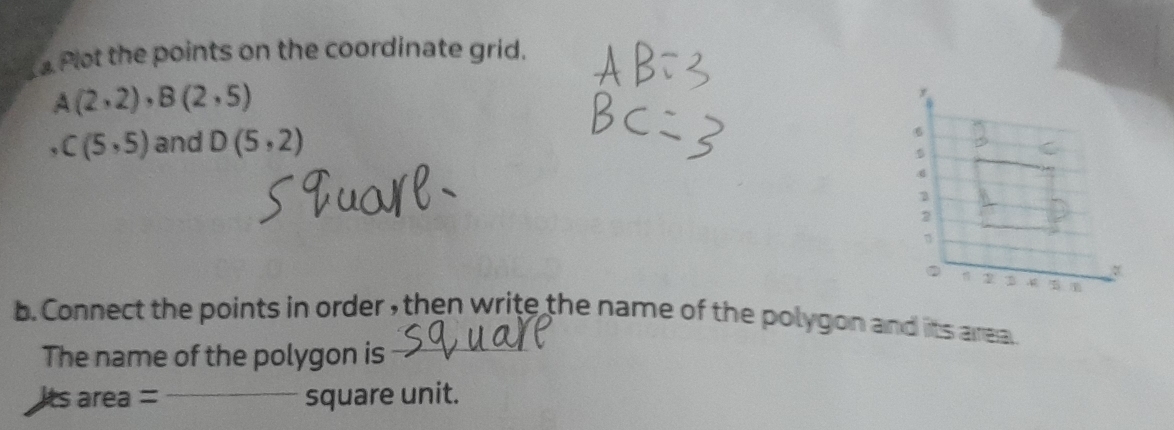 a. Plot the points on the coordinate grid.
A(2,2),B(2,5)
,C(5,5) and D(5,2)
AB=3
BC=3
square.
y
6
5
4
3
2
1
0
1 2 3 4 5 6
x
B C
A D
b. Connect the points in order, then write the name of the polygon and its area.
The name of the polygon is square
Its area = square unit.